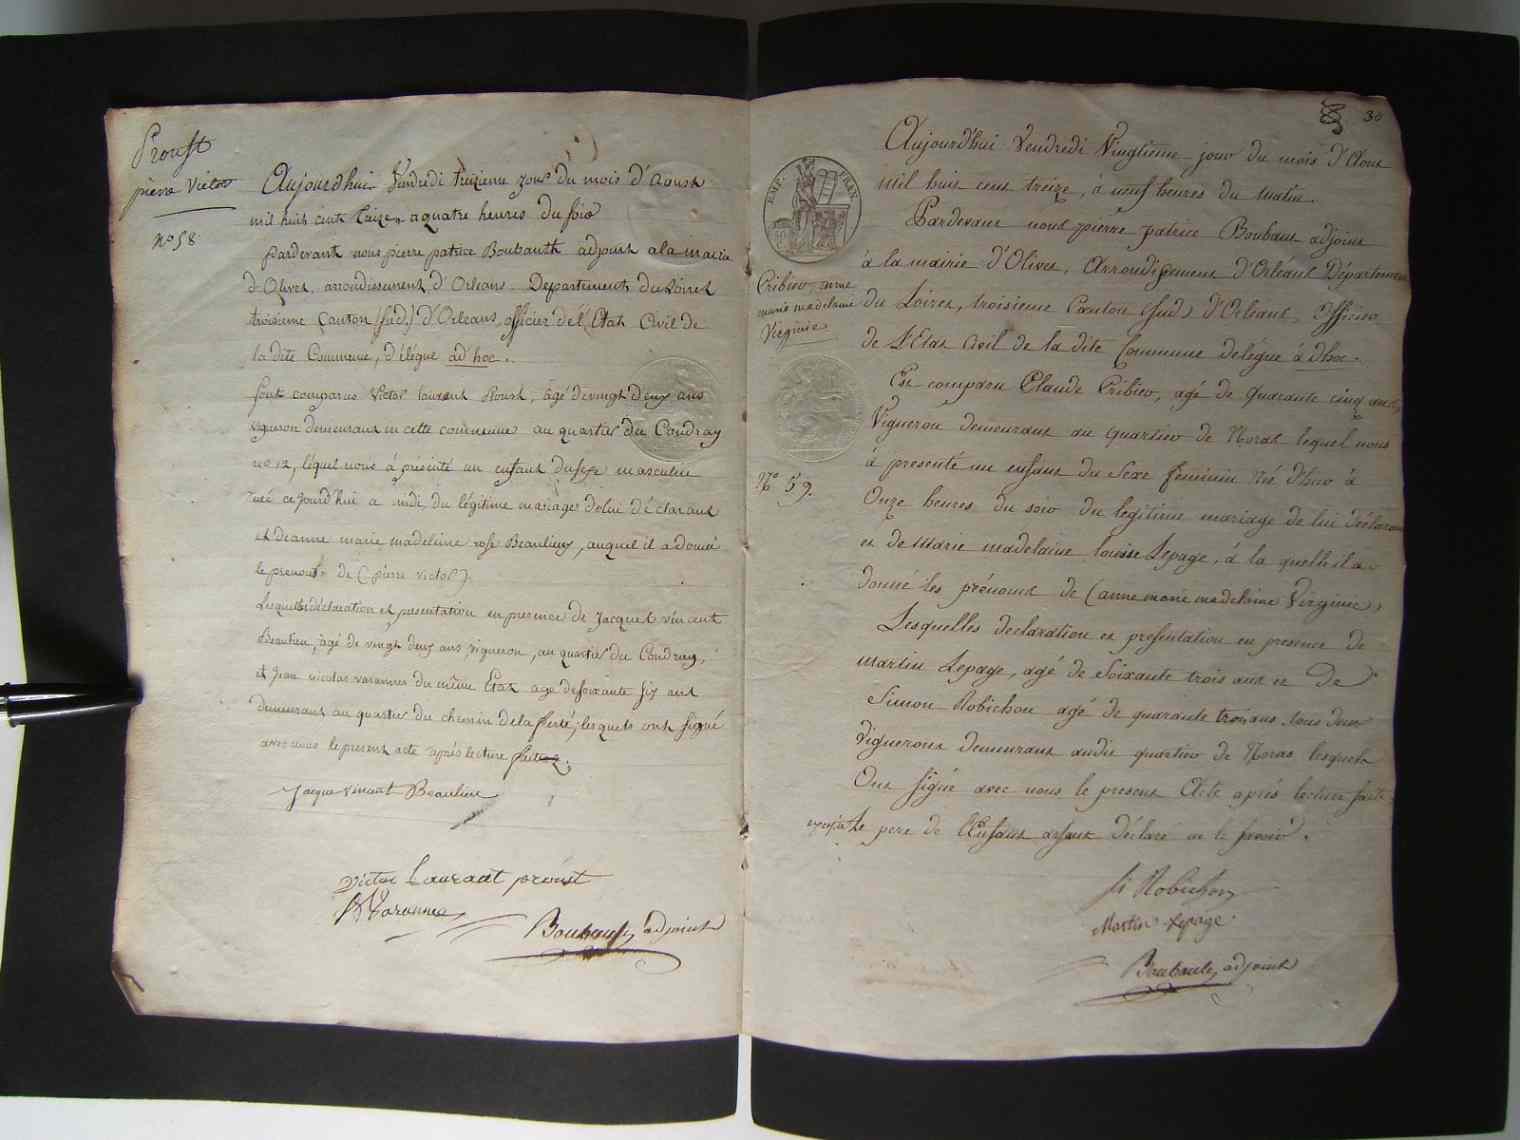 Proust
pierre Victor
n° 58
Aujourdhui Vendredi treizieme jour du mois d'Aoust
mil huit cents treize, a quatre heures du soir
pardevant nous pierre patrice Boubault adjoint a la mairie
d'Olivet arrondissement d'Orleans Departement du Loiret
troisieme Canton (sud) d'Orleans, officier de l'Etat Civil de
la dite Commune, délégué ad'hoc.
sont comparus Victor laurent Proust, âgé de vingt deux ans
vigneron demeurant en cette commune au quartier du Coudray
n° 12, lequel nous à présenté un enfant du sexe masculin
né cejourd'hui a midi, du légitime mariage de lui déclarant
et de anne marie madeleine rose Beaulieu, auquel il a donné
le prenoms de (pierre victor).
Lesquels déclaration et presentation en presence de Jacques vincent
Beaulieu, âgé de vingt deux ans, vigneron, au quartier du Coudray,
et Jean nicolas varannes du même Etat age de soixante six ans
demeurant au quartier du chemin de la ferté, lesquels ont signé
avec nous le present acte après lecture faite.
Jacque vincent Beaulieu
Victor Laurant proust
Varannes
Boubault, adjoint
30
EMP. FRAN.
Aujourd'hui Vendredi Vingtieme jour du mois d'Aout
mil huit cent treize, à neuf heures du matin.
Pardevant nous pierre patrice Boubault adjoint
à la mairie d'Olivet, Arrondissement d'Orléans Département
Cribier, anne
marie madelaine
Virginie
du Loiret, troisieme Canton (sud) d'Orléans, Officier
de l'Etat Civil de la dite Commune delégué à dhoc.
Est comparu Claude Cribier, agé de quarante cinq ans,
Vigneron demeurant au quartier de Noras lequel nous
à presenté un enfant du Sexe feminin Né d'hier à
N° 59.
Onze heures du soir du legitime mariage de lui déclarant
et de Marie madelaine louise Lepage, à la quelle il a
donné les prénoms de (anne marie madelaine Virginie)
Lesquelles declaration et présentation en presence de
martin Lepage, agé de Soixante trois ans et De
Simon Robichon agé de quarante trois ans tous deux
Vignerons demeurant audit quartier de Noras lesquels
Ont signé avec nous le present Acte après lecture faite
excepté le pere de l'Enfant
déclaré ne le savoir.
Si Robichon
Martin Lepage.
Boubault, adjoint